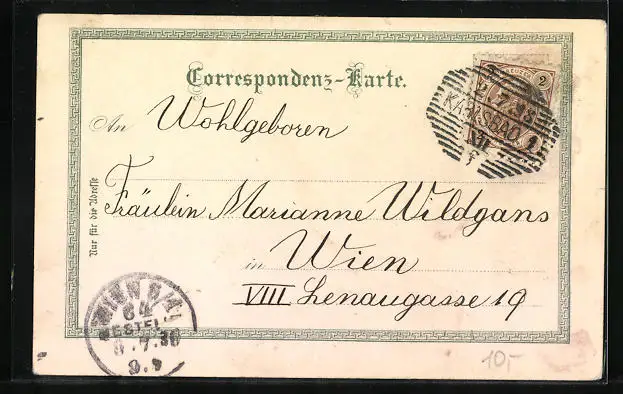 Correspondenz-Karte.
KREUZER
2
KARLSBAD
An Wohlgeboren
Nur für die Adresse
Fräulein Marianne Wildgans
in Wien
VIII Lenaugasse 19
WIEN
BESTELLT
10,-